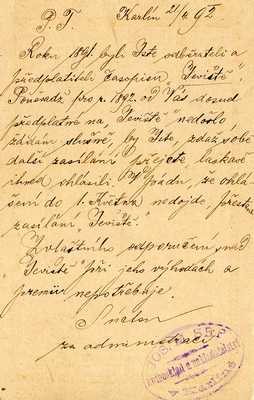 P. T. Karlín 21/4 92
Roku 1891. byli Jste odběrateli a
předplatiteli časopisu „Jeviště“.
Poněvadž pro r. 1892. od Vás dosud
předplatné na „Jeviště“ nedošlo
žádám slušně, by Jste, zdaž sobě
další zasílání přejete, laskavě
ihned ohlásili. V pádu, že ohlá-
šení do 1. května nedojde, přestane
zasílání „Jeviště.“
Zvláštního odporučení snad
„Jeviště“ při jeho výhodách a
premii nepotřebuje.
S úctou
za administraci